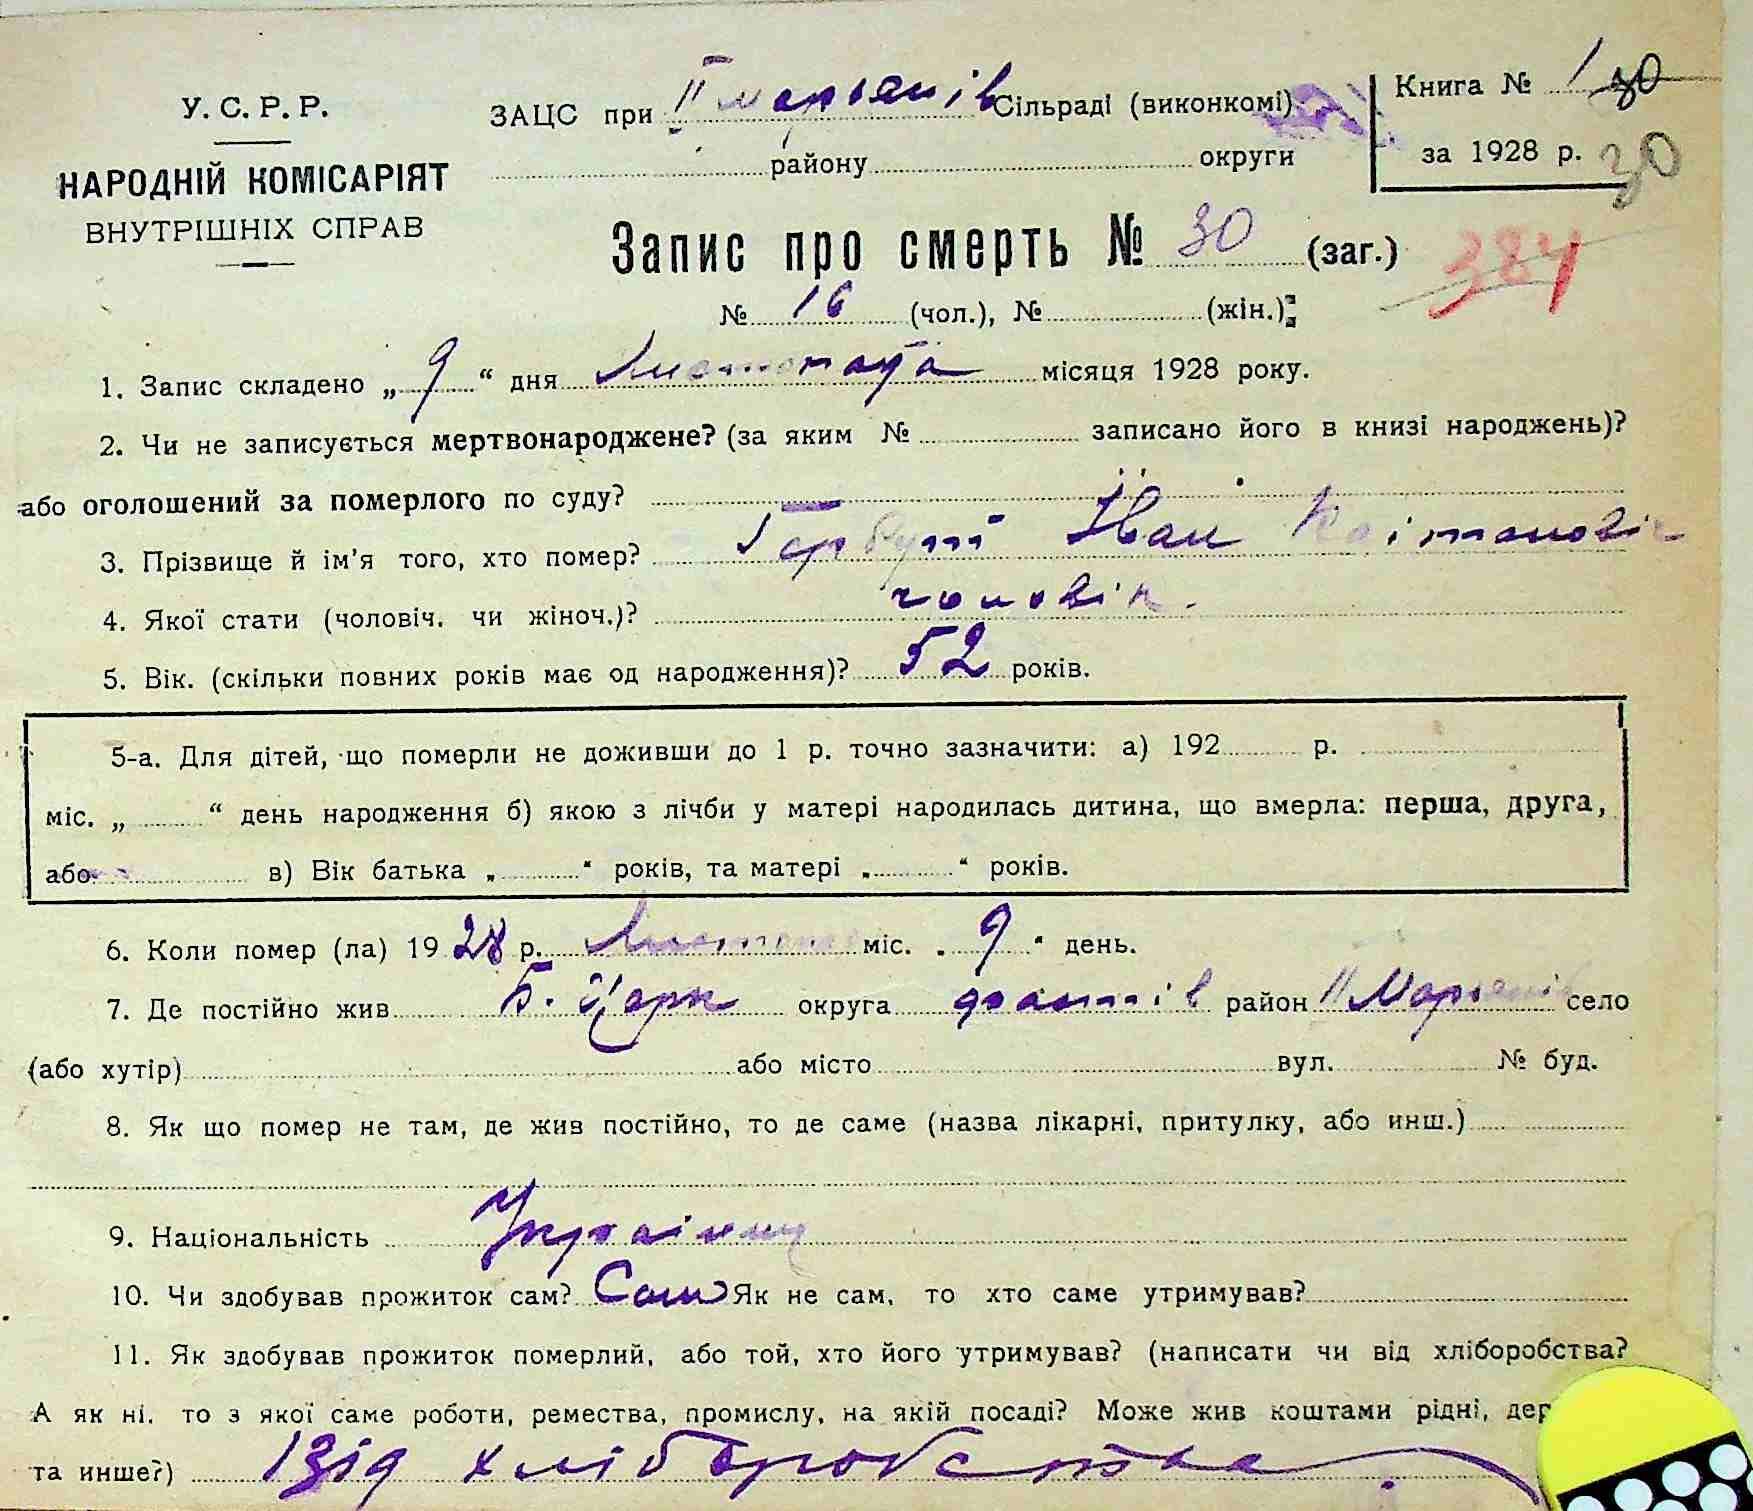 У. С. Р. Р.
НАРОДНІЙ КОМІСАРІЯТ
ВНУТРІШНІХ СПРАВ
ЗАЦС при II Марьянів Сільраді (виконкомі)
району округи
Книга № 1 30
за 1928 р. 30
Запис про смерть № 30 (заг.)
384
№ 16 (чол.), № (жін.)
1. Запис складено „ 9 “ дня Листопада місяця 1928 року.
2. Чи не записується мертвонароджене? (за яким № записано його в книзі народжень)?
або оголошений за померлого по суду?
3. Прізвище й ім'я того, хто помер? Гербут Іван
4. Якої стати (чоловіч. чи жіноч.)? чоловік.
5. Вік. (скільки повних років має од народження)? 52 років.
5-а. Для дітей, що померли не доживши до 1 р. точно зазначити: а) 192 р.
міс. „ “ день народження б) якою з лічби у матері народилась дитина, що вмерла: перша, друга,
або в) Вік батька „ “ років, та матері „ “ років.
6. Коли помер (ла) 19 28 р. Листопад міс. „ 9 “ день.
7. Де постійно жив Б. Церк округа фастів район II Марьянів село
(або хутір) або місто вул. № буд.
8. Як що помер не там, де жив постійно, то де саме (назва лікарні, притулку, або инш.)
9. Національність Українец
10. Чи здобував прожиток сам? Сам Як не сам, то хто саме утримував?
11. Як здобував прожиток померлий, або той, хто його утримував? (написати чи від хліборобства?
А як ні, то з якої саме роботи, ремества, промислу, на якій посаді? Може жив коштами рідні, дер
та инше?) Від хліборобства